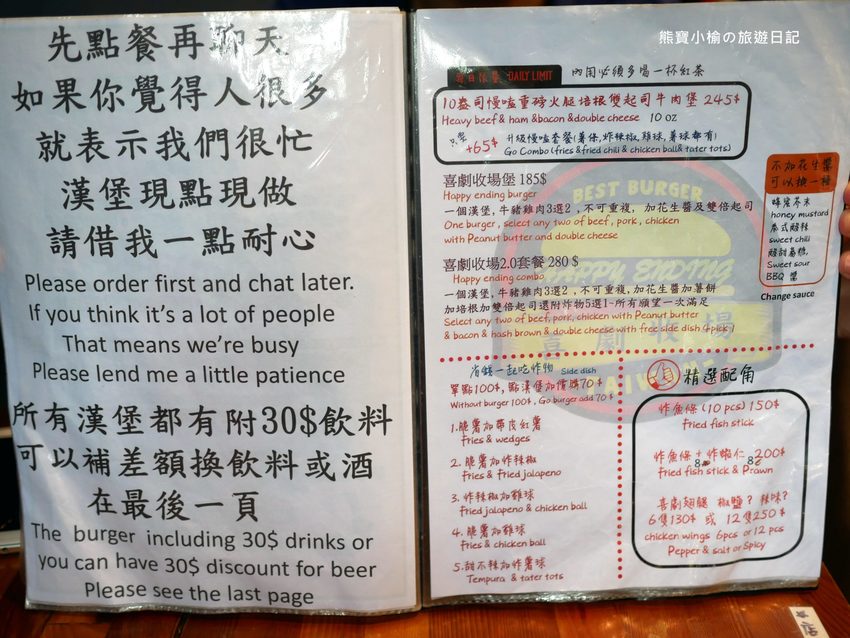 先點餐再聊天
如果你覺得人很多
就表示我們很忙
漢堡現點現做
請借我一點耐心
Please order first and chat later.
If you think it's a lot of people
That means we're busy
Please lend me a little patience
所有漢堡都有附30$飲料
可以補差額換飲料或酒
在最後一頁
The burger including 30$ drinks or
you can have 30$ discount for beer
Please see the last page
熊寶小榆の旅遊日記
每日限量 DAILY LIMIT 內閣必須多喝一杯紅茶
10盎司慢嗑重磅火腿培根雙起司牛肉堡 245$
Heavy beef & ham &bacon &double cheese 10 oz
只要+65$ 升級慢嗑套餐(薯條,炸辣椒,雞球,薯球都有)
Go Combo (fries &fried chili & chicken ball& tater tots)
喜劇收場堡 185$
Happy ending burger
一個漢堡,牛豬雞肉3選2,不可重複, 加花生醬及雙倍起司
One burger, select any two of beef, pork, chicken
with Peanut butter and double cheese
喜劇收場2.0套餐 280 $
Happy ending combo
一個漢堡,牛豬雞肉3選2,不可重複,加花生醬加薯餅
加培根加雙倍起司還附炸物5選1-所有願望一次滿足
Select any two of beef, pork, chicken with Peanut butter
& bacon & hash brown & double cheese with free side dish 4 pick 1
不加花生醬
可以換一種
蜂蜜芥末
honey mustard
泰式酸辣
sweet chili
Sweet sour
BBQ 醬
Change sauce
BEST BURGER
HAPPY ENDING
喜劇收場
TAIWAN
省錢一起吃炸物 Side dish
單點100$,點漢堡加價購70$
Without burger 100$, Go burger add 70 $
1.脆薯加帶皮紅薯
Fries & wedges
2. 脆薯加炸辣椒
Fries & fried jalapeno
3. 炸辣椒加雞球
Fried jalapeno & chicken ball
4. 脆薯加雞球
Fries & chicken ball
5.甜不辣加炸薯球
Tempura & tater tots
精選配角
炸魚條 (10 pcs) 150$
Fried fish stick
炸魚條 + 炸蝦仁 200$
8 8
Fried fish stick & Prawn
喜劇翅腿 椒鹽? 辣味?
6隻130$ 或 12隻250$
chicken wings 6pcs or 12 pcs
Pepper & salt or Spicy